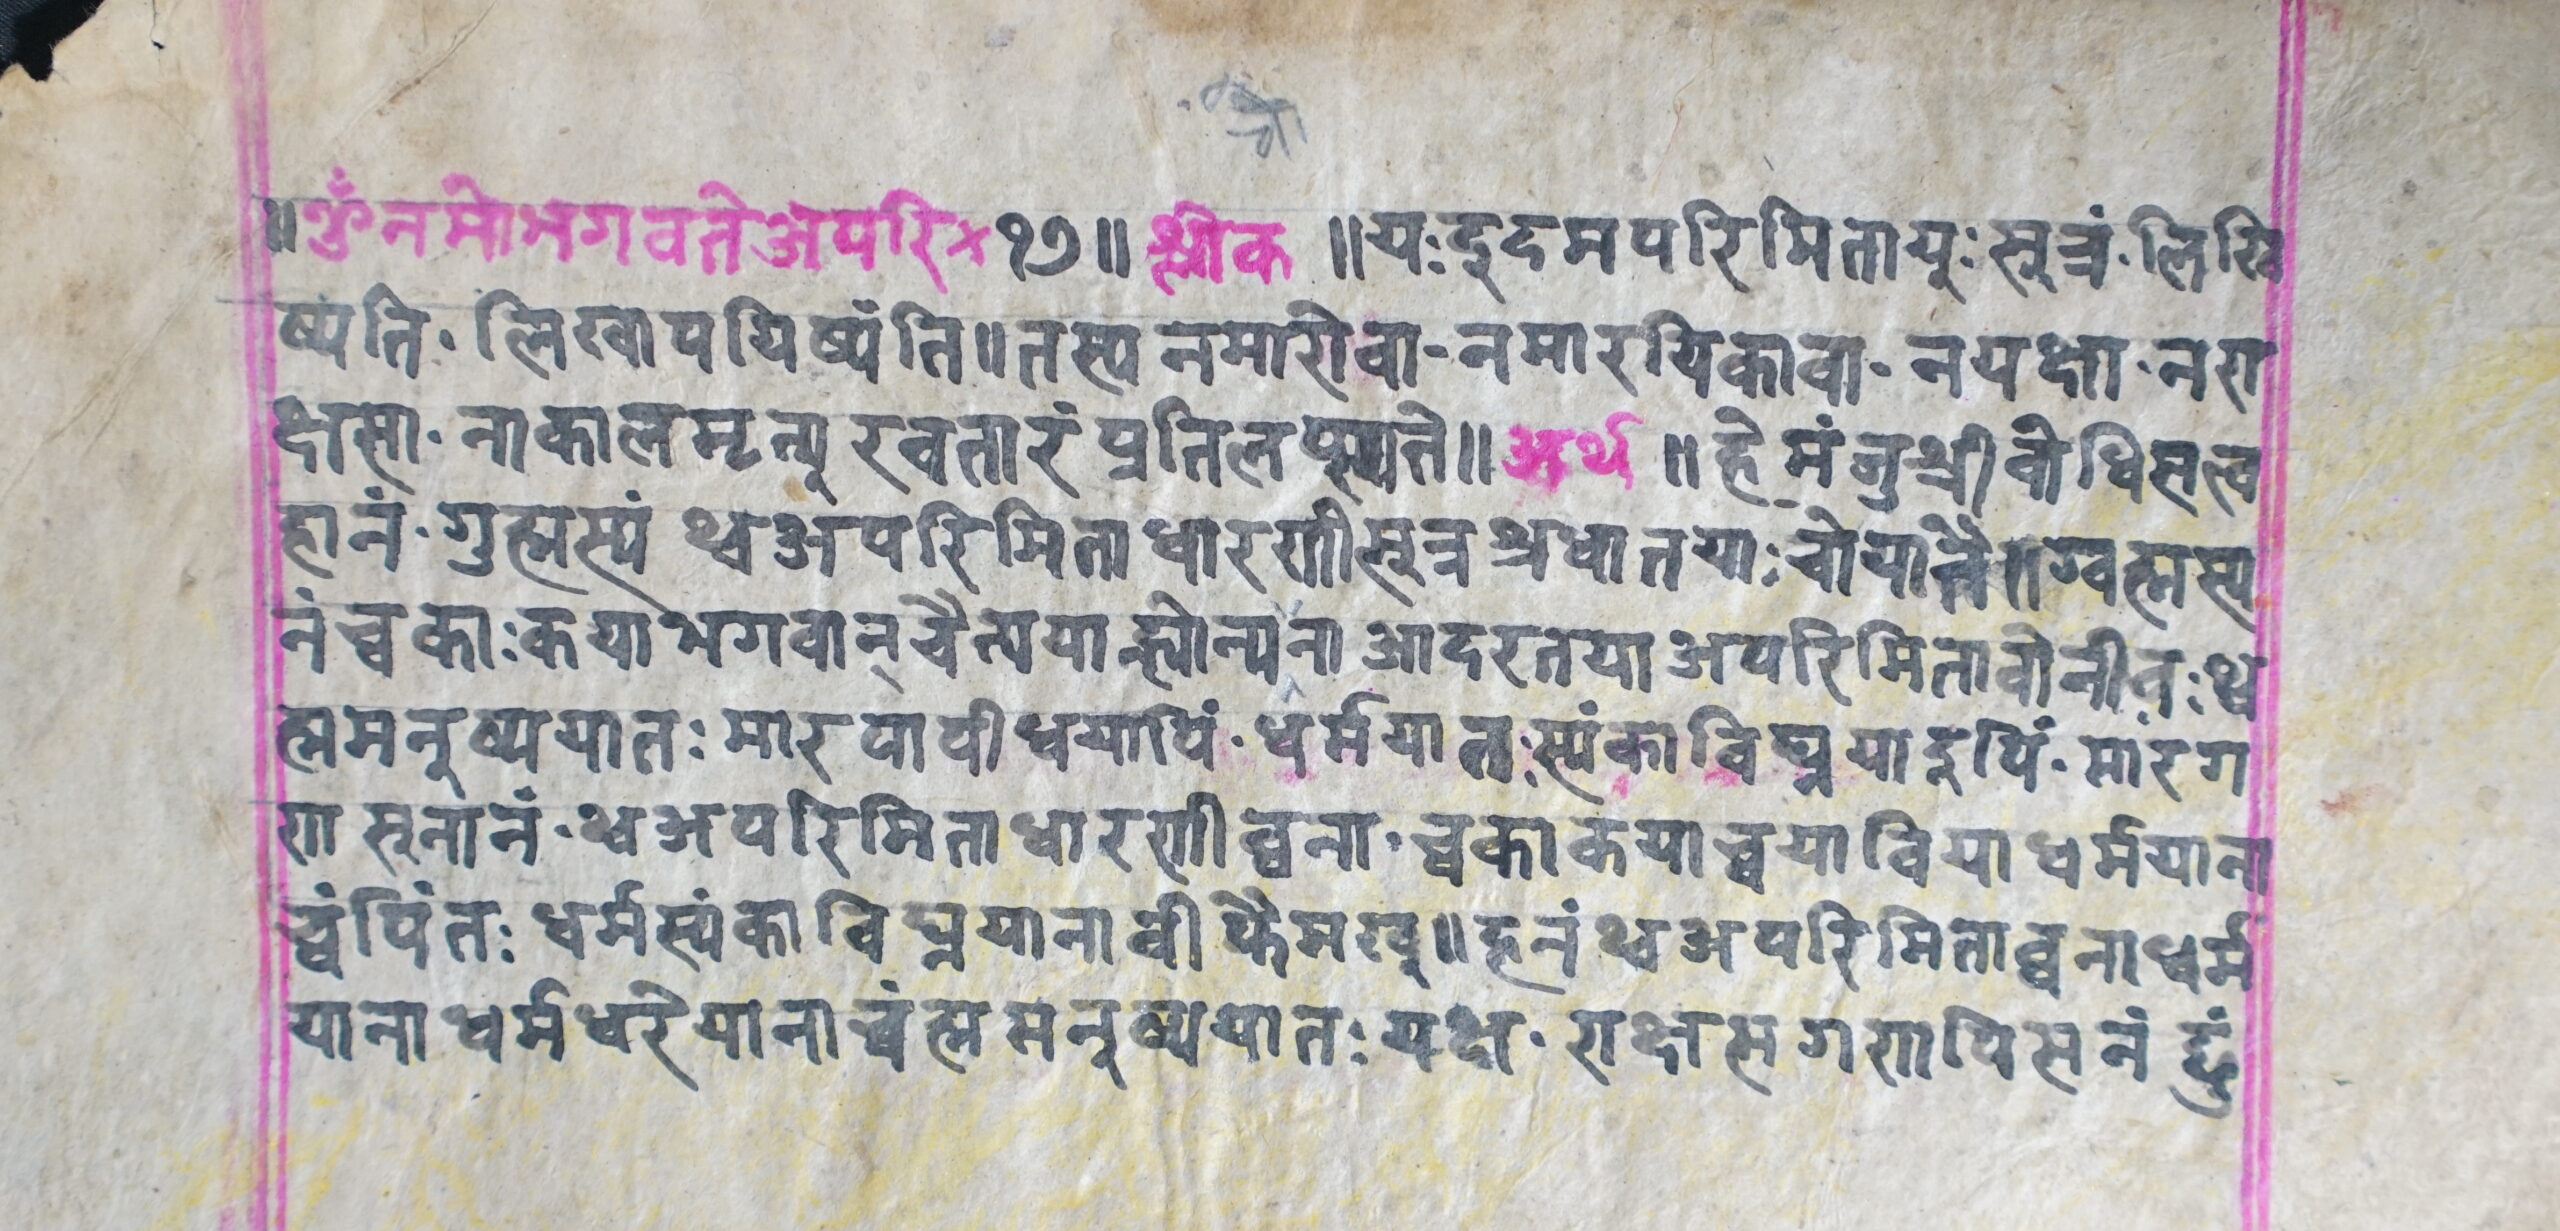 ॥ ॐ नमो भगवते अपरि× १७ ॥ श्लोक ॥ यः इदमपरिमितायुः सूत्रं · लिखि
ष्यति · लिखापयिष्यंति ॥ तस्य नमारोवा · नमारयिकावा · नयक्षा · नरा
क्षसा · नाकालमृत्यु रवतारं प्रतिलप्स्यते ॥ अर्थ ॥ हे मंजुश्री वोधिसत्व
हानं · गुह्मस्यं थ्व अपरिमिता धारणीसूत्र श्रधातयाः चोयातै ॥ ग्वह्मस्य
नं च्वकाः कया भगवान् चैत्यया न्ह्योन्यना आदरतया अपरिमिता वोनीवः थ्व
ह्म मनुष्ययातः मार पापी धयापिं · धर्मयातःस्यंका विघ्नयाइपिं · मारग
ण सूनानं · थ्व अपरिमिता धारणी ब्वना · च्वका कया च्वया विया धर्मयाना
च्वंपिंतः धर्म स्यंका विघ्नयाना वी फैमखु ॥ हनं थ्व अपरिमिता ब्वना धर्म
याना धर्म धरेयाना च्वंह्म मनुष्ययातः यक्ष · राक्षस गणपिसनं